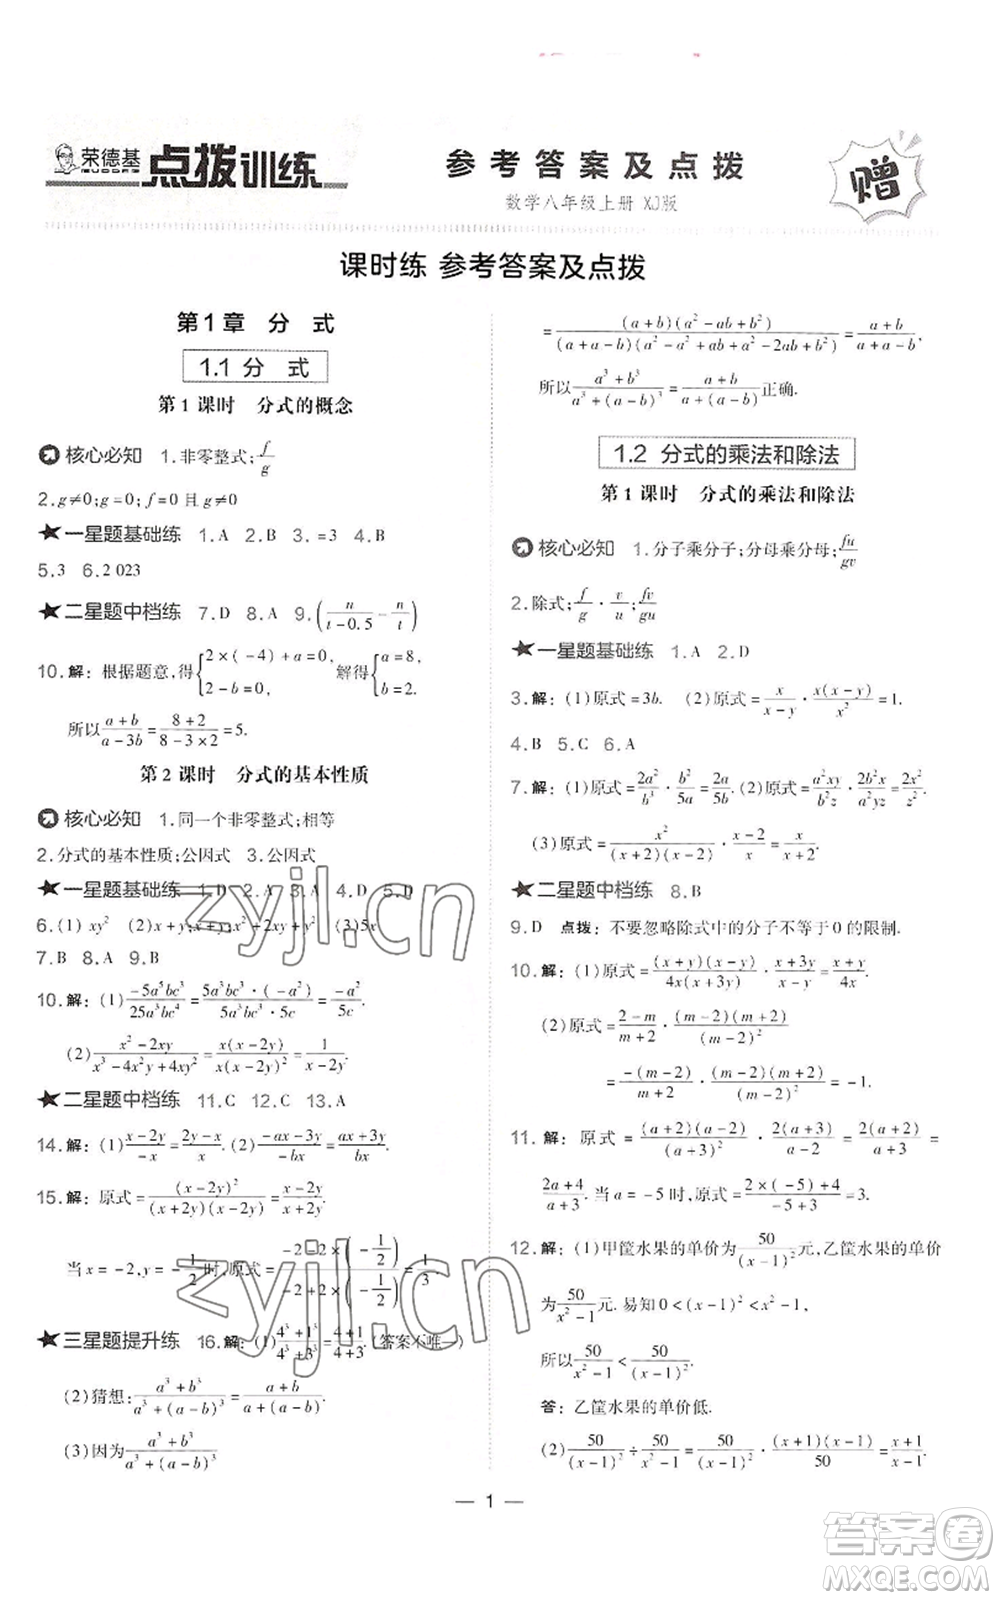 荣德基
点拨训练
参考答案及点拨
赠
数学八年级上册 XJ版
课时练 参考答案及点拨
第1章 分 式
1.1 分 式
第1课时 分式的概念
核心必知 1.非零整式;f/g
2.g≠0;g=0;f=0且g≠0
★一星题基础练 1.A 2.B 3.=3 4.B
5.3 6.2 023
★二星题中档练 7.D 8.A 9.(n/(t-0.5)-n/t)
10.解:根据题意,得{2×(-4)+a=0,2-b=0,解得{a=8,b=2.
所以(a+b)/(a-3b)=(8+2)/(8-3×2)=5.
第2课时 分式的基本性质
核心必知 1.同一个非零整式;相等
2.分式的基本性质;公因式 3.公因式
★一星题基础练 1.D 2.A 3.A 4.D 5.D
6.(1)xy² (2)x+y;x²+2xy+y² (3)5x
7.B 8.A 9.B
10.解:(1)(-5a⁵bc³)/(25a³bc⁴)=(5a³bc³·(-a²))/(5a³bc³·5c)=(-a²)/(5c).
(2)(x²-2xy)/(x³-4x²y+4xy²)=(x(x-2y))/(x(x-2y)²)=1/(x-2y).
★二星题中档练 11.C 12.C 13.A
14.解:(1)(x-2y)/(-x)=(2y-x)/x. (2)(-ax-3y)/(-bx)=(ax+3y)/(bx).
15.解:原式=((x-2y)²)/((x+2y)(x-2y))=(x-2y)/(x+2y).
当x=-2,y=-1/2时,原式=(-2-2×(-1/2))/(-2+2×(-1/2))=1/3.
★三星题提升练 16.解:(1)(4³+1³)/(4³+3³)=(4+1)/(4+3).(答案不唯一)
(2)猜想:(a³+b³)/(a³+(a-b)³)=(a+b)/(a+(a-b)).
(3)因为(a³+b³)/(a³+(a-b)³)
=((a+b)(a²-ab+b²))/((a+a-b)(a²-a²+ab+a²-2ab+b²))=(a+b)/(a+a-b),
所以(a³+b³)/(a³+(a-b)³)=(a+b)/(a+(a-b))正确.
1.2 分式的乘法和除法
第1课时 分式的乘法和除法
核心必知 1.分子乘分子;分母乘分母;fu/gv
2.除式;f/g·v/u;fv/gu
★一星题基础练 1.A 2.D
3.解:(1)原式=3b. (2)原式=x/(x-y)·(x(x-y))/x²=1.
4.B 5.C 6.A
7.解:(1)原式=2a²/b³·b²/5a=2a/5b.(2)原式=a²xy/b²z·2b²x/a²yz=2x²/z².
(3)原式=x²/((x+2)(x-2))·(x-2)/x=x/(x+2).
★二星题中档练 8.B
9.D 点拨:不要忽略除式中的分子不等于0的限制.
10.解:(1)原式=((x+y)(x-y))/(4x(x+3y))·(x+3y)/(x-y)=(x+y)/4x.
(2)原式=(2-m)/(m+2)·((m-2)(m+2))/((m-2)²)=
(-(m-2))/(m+2)·((m-2)(m+2))/((m-2)²)=-1.
11.解:原式=((a+2)(a-2))/((a+3)²)·(2(a+3))/(a-2)=(2(a+2))/(a+3)=
(2a+4)/(a+3).当a=-5时,原式=(2×(-5)+4)/(-5+3)=3.
12.解:(1)甲筐水果的单价为50/((x-1)²)元,乙筐水果的单价
为50/(x²-1)元.易知0<(x-1)²<x²-1,
所以50/(x²-1)<50/((x-1)²).
答:乙筐水果的单价低.
(2)50/((x-1)²)÷50/(x²-1)=50/((x-1)²)·((x+1)(x-1))/50=(x+1)/(x-1).
— 1 —
zyjl.cn
zyjl.cn
答案圈
MXQE.COM